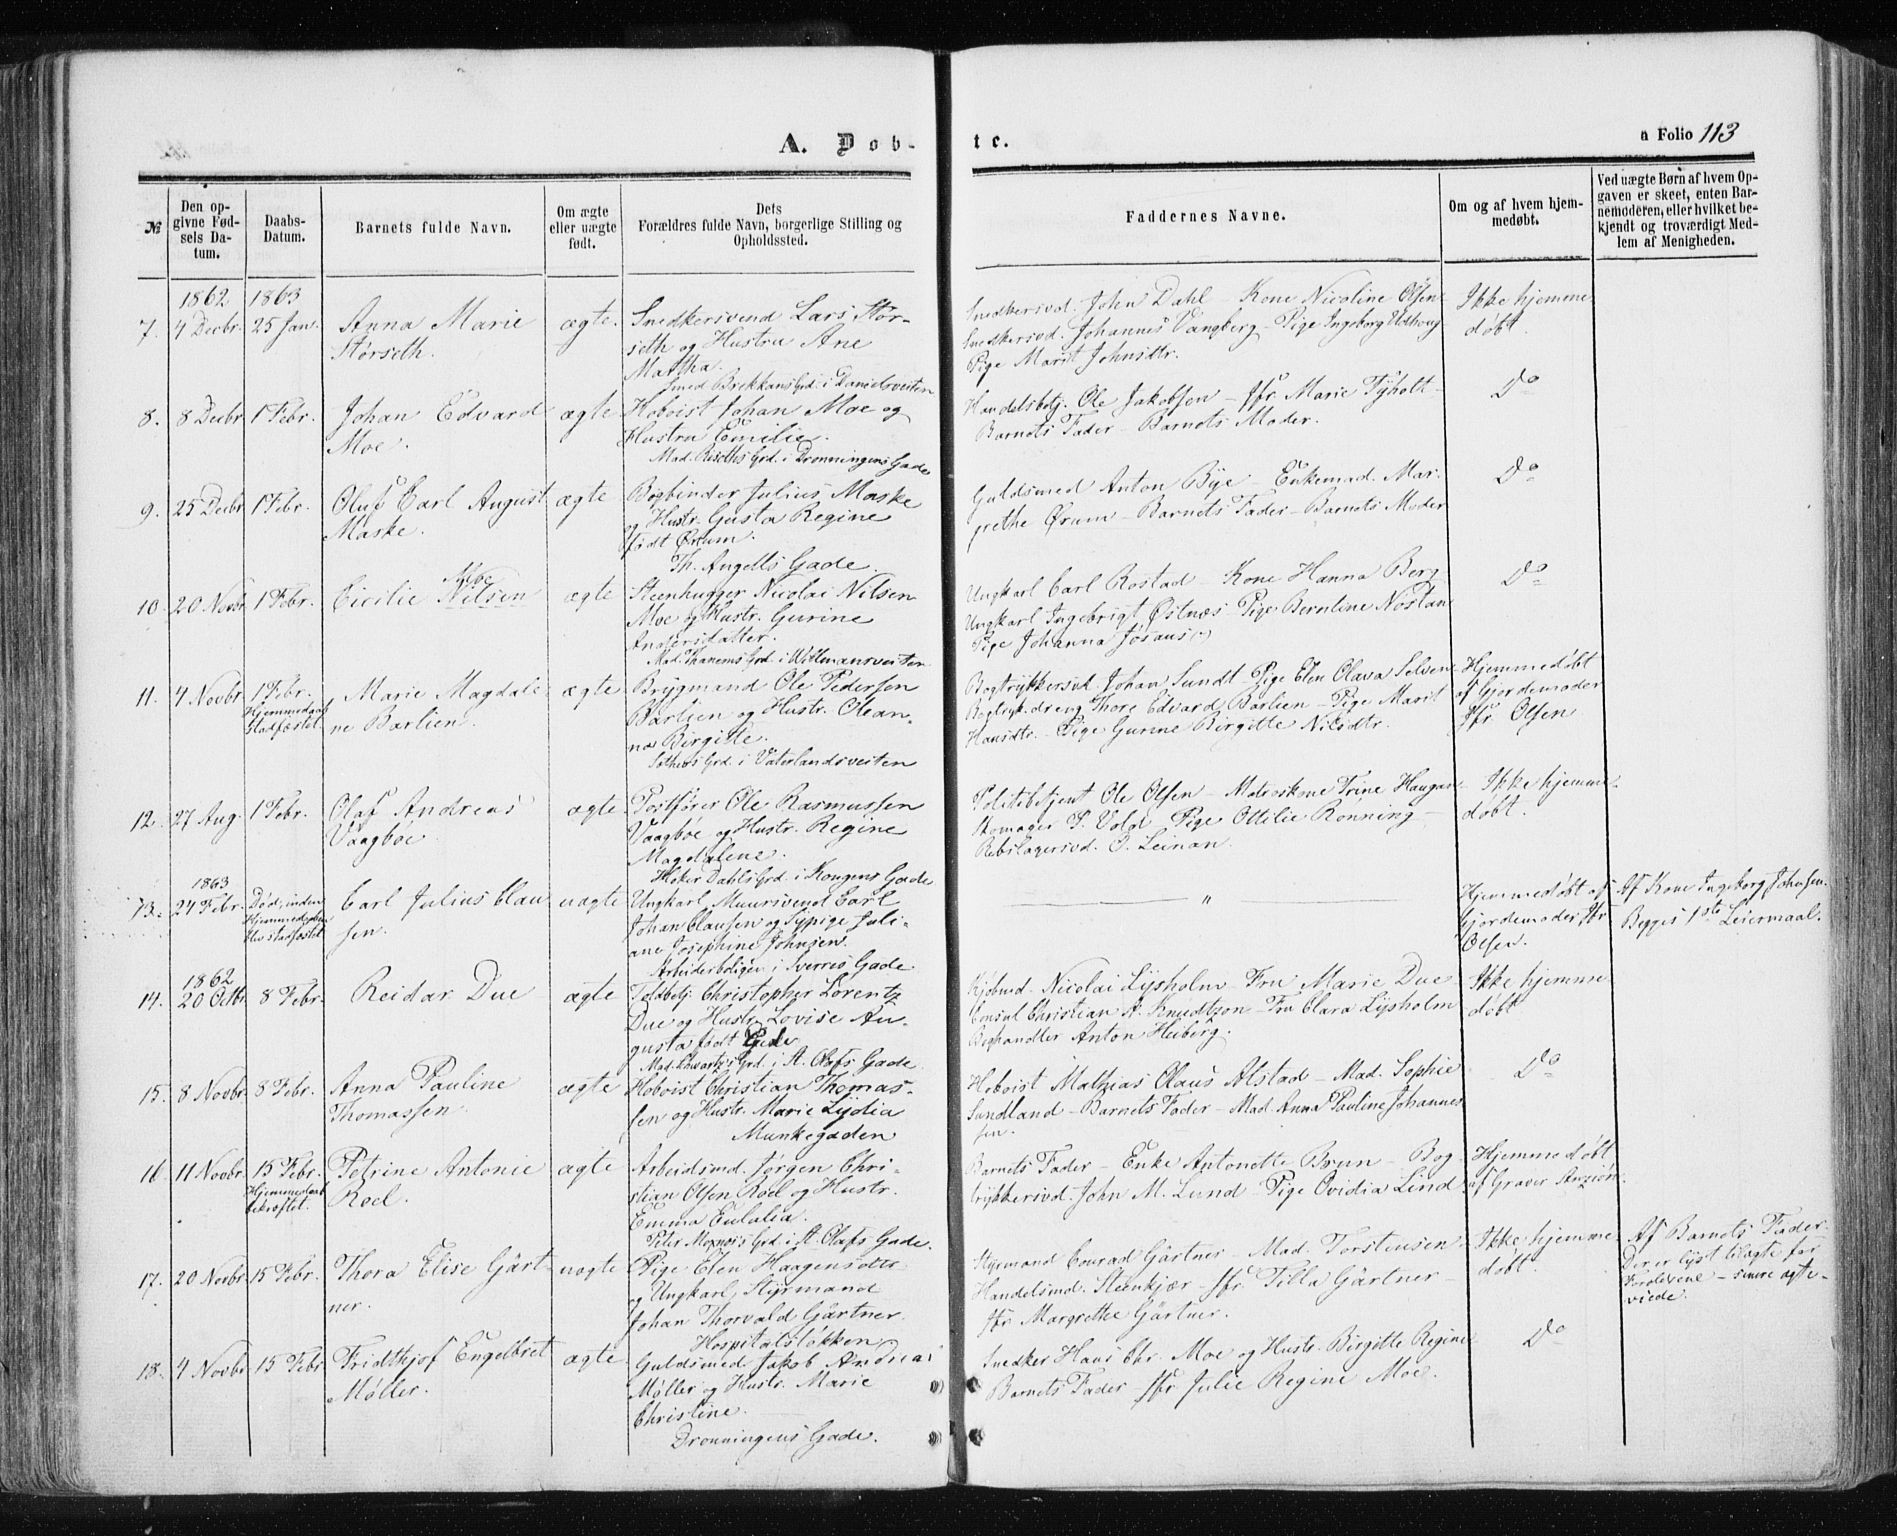 A. Døb-
te.
a Folio 113
№
Den op-
givne Fød-
sels Da-
tum.
Daabs-
Datum.
Barnets fulde Navn.
Om ægte
eller uægte
født.
Dets
Forældres fulde Navn, borgerlige Stilling og
Opholdssted.
Faddernes Navne.
Om og af hvem hjem-
medøbt.
Ved uægte Børn af hvem Op-
gaven er skeet, enten Bar-
nemoderen, eller hvilket be-
kjendt og troværdigt Med-
lem af Menigheden.
1862 1863
7. 4 Decbr. 25 Jan.
Anna Marie
Størseth.
ægte.
Snedkersvend Lars Stør-
seth og Hustru Ane
Martha.
Smed BrekkansGrd. i Danielsveiten
Snedkersvd. John Dahl - Kone Nicoline Olsen
Snedkersvd. Johannes Vangberg - Pige Ingeborg Udhoug
Pige Marit Johnsdtr.
Ikke hjemme
døbt.
8. 8 Decbr 1 Febr.
Johan Edvard
Moe.
ægte
Hoboist Johan Moe og
Hustru Emilie.
Mad. Riseths Grd. i Dronningens Gade
Handelsbetj. Ole Jakobsen - Jfr. Marie Tyholt -
Barnets Fader - Barnets Moder.
Do
9. 25 Decbr 1 Febr.
Oluf Carl August
Maske.
ægte
Bogbinder Julius Maske
og Hustr. Gusta Regine
født Ørum.
Th. Angells Gade.
Guldsmed Anton Bye - Enkemad. Mar-
grethe Ørum - Barnets Fader - Barnets Moder
Do
10. 20 Novbr 1 Febr.
Moe
Cicilie Nilsen
ægte
Steenhugger Nicolai Nilsen
Moe og Hustr. Gurine
Andersdatter.
Mad. Thanems Grd. i Wittmansveiten
Ungkarl Carl Rostad - Kone Hanna Berg
Ungkarl Ingebrigt Østnæs - Pige Berntine Nostan
Pige Johanna Josaus (?)
Do
11. 4 Novbr 1 Febr.
Hjemmedaab
stadfæstet.
Marie Magdale-
ne Barlien.
ægte
Brygmand Ole Pedersen
Barlien og Hustr. Olean-
na Birgitte.
Grd. i Vaterlandsveiten
Bogtrykkersvd. Johan Sundt - Pige Elen Olava Selven
Bogtryk.dreng Thore Edvard Barlien - Pige Marit
Hansdtr. - Pige Gurine Birgitte Nilsdtr.
Hjemmedøbt
af Gjordemoder
Jfr. Olsen
12. 27 Aug. 1 Febr.
Olaf Andreas
Vaagbøe
ægte.
Postfører Ole Rasmussen
Vaagbøe og Hustr. Regine
Magdalene.
Høker Dahls Grd. i Kongens Gade
Politibetjent Ole Olsen - Matroskone Trine Haugan
Skomager P. Vold - Pige Ottilie Rønning -
Rebslagersvd. O. Leinan.
Ikke hjemme-
døbt.
1863
13. 24 Febr.
Død, inden
Hjemmedaaben
blev stadfæstet.
Carl Julius Clau
sen.
uægte
Ungkarl Muursvend Carl
Johan Clausen og Sypige Juli-
ane Josephine Johnsen.
Arbeiderboligen i Sverres Gade
"
Hjemmedøbt af
Gjordemoder Jfr
Olsen.
Af Kone Ingeborg Johnsen.
Begges 1ste Leiermaal.
1862
14. 20 Octbr. 8 Febr.
Reidar Due
ægte
Toldbetj. Christopher Lorentz
Due og Hustr. Lovise Au-
gusta født Gede
Mad. Schwartz's Grd. i St. Olafs Gade
Kjøbmd. Nicolai Lysholm - Fru Marie Due
Consul Christian A. Knudtzon - Fru Clara Lysholm
Boghandler Anton Heiberg.
Ikke hjemme
døbt
15. 8 Novbr. 8 Febr.
Anna Pauline
Thomassen.
ægte
Hoboist Christian Thomas-
sen og Hustr. Marie Lydia
Munkegaden
Hoboist Mathias Olaus Alstad - Mad. Sophie
Sundland - Barnets Fader - Mad. Anna Pauline Johannes
sen.
Do
16. 11 Novbr. 15 Febr.
Hjemmedaab
bekræftet.
Petrine Antonie
Roel.
ægte
Arbeidsmd. Jørgen Chri-
stian Olsen Roel og Hustr.
Emma Eulalia.
Peter Moxnæs Grd. i St. Olafs Gade.
Barnets Fader - Enke Antonette Brun - Bog-
trykkersvd. John M. Lund - Pige Ovidia Lind
Hjemmedøbt
af Graver
17. 20 Novbr 15 Febr.
Thora Elise Gärt-
ner.
uægte
Pige Elen Haagensdtr
og Ungkarl, Styrmand
Johan Thorvald Gärtner.
Hospitalsløkken
Styrmand Conrad Gärtner - Mad. Torstensen
Handelsmd. Steenkjær - Jfr. Tilla Gärtner -
Jfr Margrethe Gärtner.
Ikke hjemme
døbt.
Af Barnets Fader.
Der er lyst tilægte for
Forældrene - senere ægte-
viede.
18. 4 Novbr 15 Febr
Fridthjof Engelbret
Møller.
ægte
Guldsmed Jakob Andreas
Møller og Hustr. Marie
Christine.
Dronningens Gade.
Snedker Hans Chr. Moe og Hustr. Birgitte Regine
Barnets Fader - Jfr. Julie Regine Moe.
Do